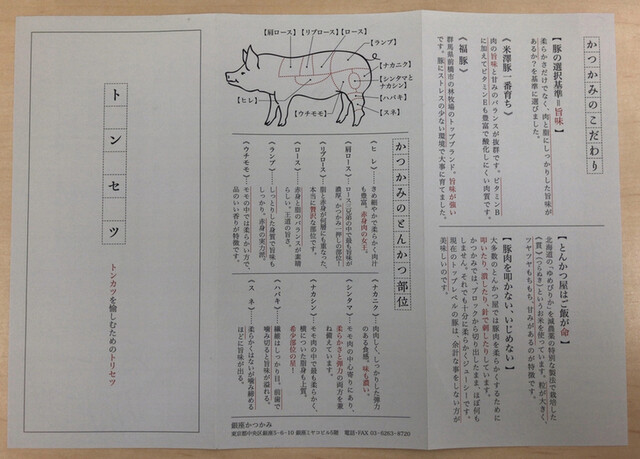 かつかみのこだわり
【豚の選択基準＝旨味】
柔らかさだけでなく、肉と脂にしっかりした旨味が
あるか？を基準に選びました。
《米澤豚一番育ち》
肉の旨味と甘みのバランスが抜群です。ビタミンB
に加えてビタミンEも豊富で酸化しにくい肉質です。
《福豚》
群馬県前橋市の林牧場のトップブランド。旨味が強い
です。豚にストレスの少ない環境で大事に育てました。
【とんかつ屋はご飯が命】
北海道の「ゆめぴりか」を減農薬の特別な製法で栽培した
《貫》（つらぬき）というお米を使っています。粒が大きく、
ツヤツヤもちもち、甘みがあるのが特徴です。
【豚肉を叩かない、いじめない】
大多数のとんかつ屋では豚肉を柔らかくするために
叩いたり、潰したり、針で刺したりしています。
かつかみでは、ブロックから切り出したまま、ほぼ何も
しません。それでも十分に柔らかくジューシーです。
現在のトップレベルの豚は、余計な事をしない方が
美味しいのです。
【肩ロース】
【リブロース】
【ロース】
【ランプ】
【ナカニク】
【シンタマと
ナカシン】
【ハバキ】
【スネ】
【ウチモモ】
【ヒレ】
かつかみのとんかつ部位
《ヒレ》きめ細やかで柔らかく肉汁
も豊富。赤身肉の女王。
《肩ロース》ロース三兄弟の中で最も旨味が
濃厚。かつかみ一押しの部位！
《リブロース》脂と赤身が何層にも重なった、
本当に贅沢な部位です。
《ロース》赤身と脂のバランスが素晴
らしい、王道の旨さ。
《ランプ》しっとりした身質で旨味も
しっかり。赤身の実力派。
《ウチモモ》モモの中では柔らかい方で、
品のいい香りが特徴です。
《ナカニク》肉肉しく、しっかりした弾力
のある食感。味も濃い。
《シンタマ》モモ肉の中心寄りにあり、
柔らかさと弾力の両方を兼
ね備えています。
《ナカシン》モモ肉の中で最も柔らかく、
横についた脂身も上質。
希少部位の星！
《ハバキ》繊維はしっかり目。前歯で
噛み切ると旨味が溢れる。
《スネ》柔らかくはないが噛み締める
ほどに旨味が出る。
銀座かつかみ
東京都中央区銀座5-6-10 銀座ミヤコビル5階 電話・FAX 03-6263-8720
トンセツ
トンカツを愉しむためのトリセツ